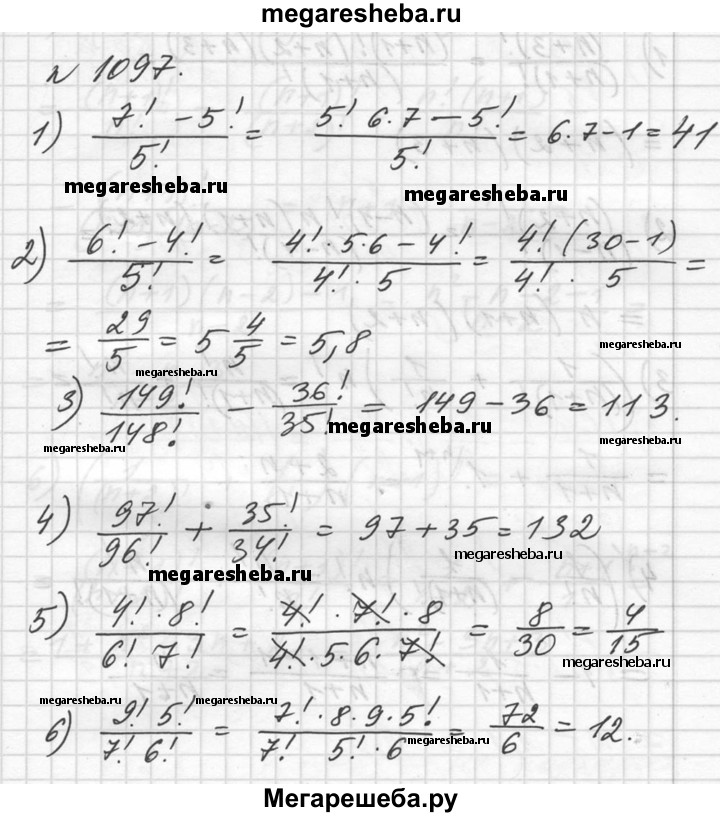 megaresheba.ru
№ 1097.
1) \frac{7! - 5!}{5!} = \frac{5! 6·7 - 5!}{5!} = 6·7 - 1 = 41
megaresheba.ru megaresheba.ru
2) \frac{6! - 4!}{5!} = \frac{4!·5·6 - 4!}{4!·5} = \frac{4!(30-1)}{4!·5} =
= \frac{29}{5} = 5\frac{4}{5} = 5,8
megaresheba.ru megaresheba.ru
3) \frac{149!}{148!} - \frac{36!}{35!} = 149 - 36 = 113.
megaresheba.ru megaresheba.ru megaresheba.ru
4) \frac{97!}{96!} + \frac{35!}{34!} = 97 + 35 = 132
megaresheba.ru megaresheba.ru
5) \frac{4!·8!}{6! 7!} = \frac{4!·7!·8}{4!·5·6·7!} = \frac{8}{30} = \frac{4}{15}
megaresheba.ru
megaresheba.ru megaresheba.ru
6) \frac{9! 5!}{7! 6!} = \frac{7!·8·9·5!}{7! 5!·6} = \frac{72}{6} = 12.
megaresheba.ru megaresheba.ru
Мегарешеба.ру